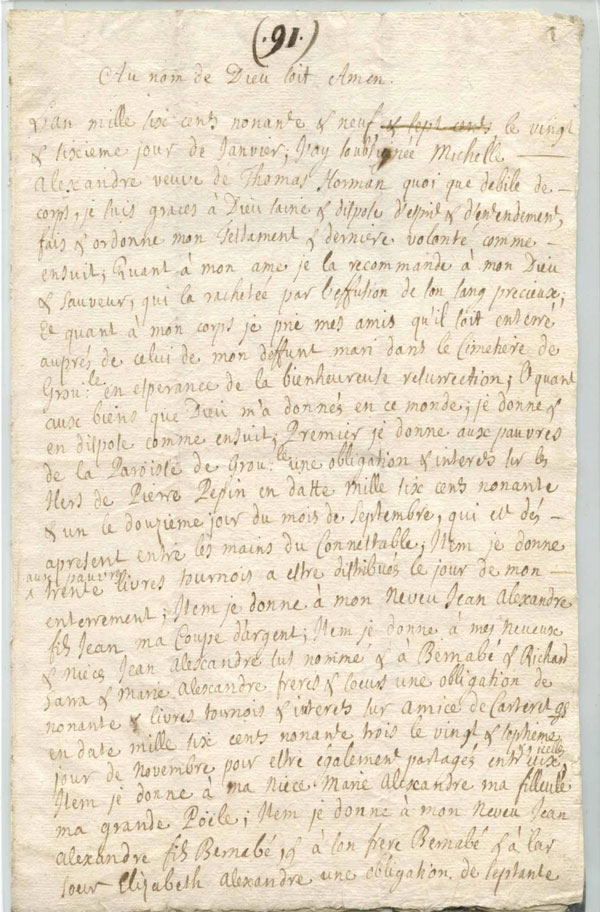 (·91·)
1
Au nom de Dieu soit Amen.
L'an mille six cents nonante & neuf & sept cents le vingt
& sixieme jour de Janvier, soubsignée Michelle
Alexandre veuve de Thomas Horman quoi que debile de
corps, je suis graces à Dieu saine & dispose d'esprit & d'entendement,
fais & ordonne mon Testament & derniere volonté comme
ensuit; Quant à mon ame je la recommande à mon Dieu
& sauveur, qui la rachetée par l'effusion de son sang precieux;
Et quant à mon corps je prie mes amis qu'il soit enterré
auprés de celui de mon deffunt mari dans le Cimetiere de
Grou:le en esperance de la bienheureuse resurrection; Et quant
aux biens que Dieu m'a donnés en ce monde; je donne &
en dispose comme ensuit; Premier je donne aux pauvres
de la Paroisse de Grou:le une obligation & interests sur les
hers de Pierre Pepin en datte mille six cents nonante
& un le douzième jour du mois de Septembre, qui est dés
apresent entre les mains du Connettable; Item je donne
aux pauvres
trente livres tournois a estre distribues le jour de mon
enterrement; Item je donne à mon Neveu Jean Alexandre
fils Jean ma Coupe d'argent; Item je donne à mes neveux
& nieces Jean Alexandre sus nommé & à Bernabé & Richard
Sara & Marie Alexandre freres & soeurs une obligation de
nonante & livres tournois & interests sur Amice de Carteret
en date mille six cents nonante trois le vingt & septieme
jour de Novembre pour estre également partagés entr'eux
icelle
Item je donne à ma niece Marie Alexandre ma filleule
ma grande Poële; Item je donne à mon Neveu Jean
Alexandre fils Bernabé, & à son frere Bernabé & à leur
soeur Elizabeth Alexandre une obligation de septante